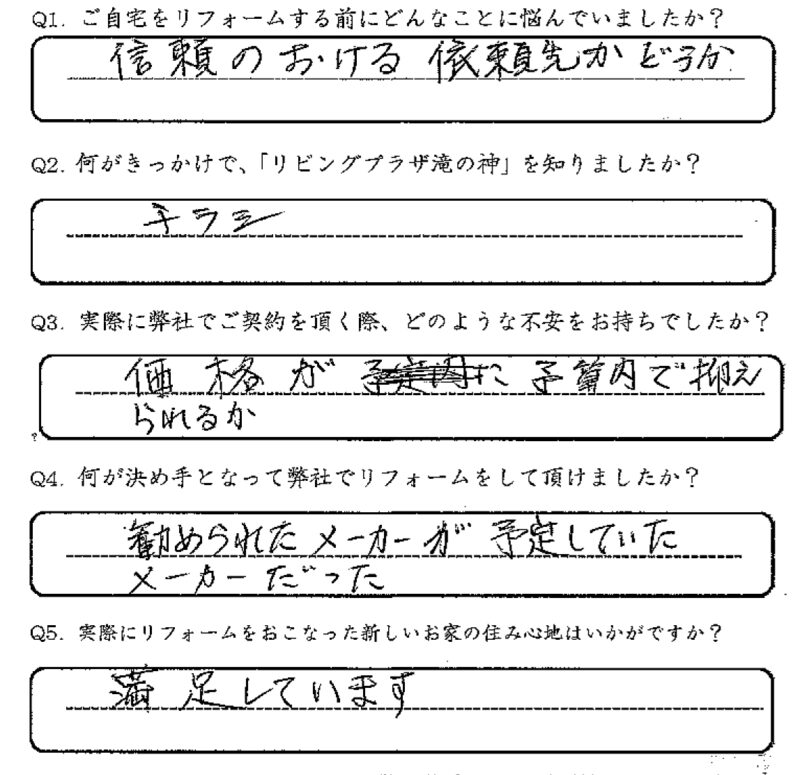 Q1. ご自宅をリフォームする前にどんなことに悩んでいましたか？
信頼のおける依頼先かどうか
Q2. 何がきっかけで、「リビングプラザ滝の神」を知りましたか？
チラシ
Q3. 実際に弊社でご契約を頂く際、どのような不安をお持ちでしたか？
価格が予算内で抑え
られるか
Q4. 何が決め手となって弊社でリフォームをして頂けましたか？
勧められたメーカーが予定していた
メーカーだった
Q5. 実際にリフォームをおこなった新しいお家の住み心地はいかがですか？
満足しています